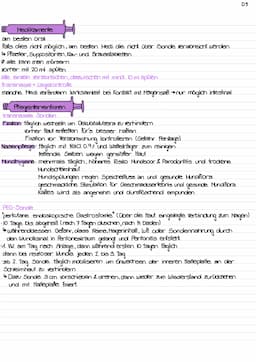 Medikamente
am besten oral
Falls dies nicht möglich, am besten Med. die nicht über Sonde verabreicht werden
↳ Pflaster, Suppositorien, Kau- und Brausetabletten
# alle klein mörsern
vorher mit 20 ml spülen
alle einzeln verabreichen, dazwischen mit mind. 10 ml spülen
manche Med. verändern Wirksamkeit bei Kontakt mit Magensaft → nur möglich intestinal
Pflegeinterventionen
transnasale Sonden
Fixation täglich wechseln um Dekubitalulzera zu verhindern
vorher Haut entfetten für's besser halten
Fixation vor Verabreichung kontrollieren (Gefahr Aspirage)
Nasenpflege: täglich mit NaCl 0.9% und Watteträger zum reinigen
fettende Salben wegen gereizter Haut
Mundhygiene: mehrmals täglich, höheres Risiko Mundsoor & Parodontitis und trockene
Mundschleimhaut
Mundspülungen regen Speichelfluss an und gesunde Mundflora
geschmackliche Stimulation für Geschmackserlebnis und gesunde Mundflora
Kaltes wird als angenehm und durstlöschend empfunden
PEG-Sonde
"perkutane endoskopische Gastrostomie" (über das Haut eingelegte Verbindung zum Magen)
10 Tage bis eingeheilt (nach 7 Tagen duschen, nach 14 baden)
↳ währenddessen Gefahr, dass Keime, Mageninhalt, Luft oder Sondennahrung durch
den Wundkanal in Peritonealraum gelangt und Peritonitis entsteht
1. VW am Tag nach Anlage, dann während ersten 10 Tagen täglich
dann bei reizloser Wunde jeden 2. bis 3. Tag
ab 2. Tag Sonde täglich mobilisieren um Einwachsen der inneren Halteplatte an der
Schleimhaut zu verhindern
↳ Dazu Sonde 3 cm vorschieben & drehen, dann wieder zum Widerstand zurückziehen
und mit Halteplatte fixiert